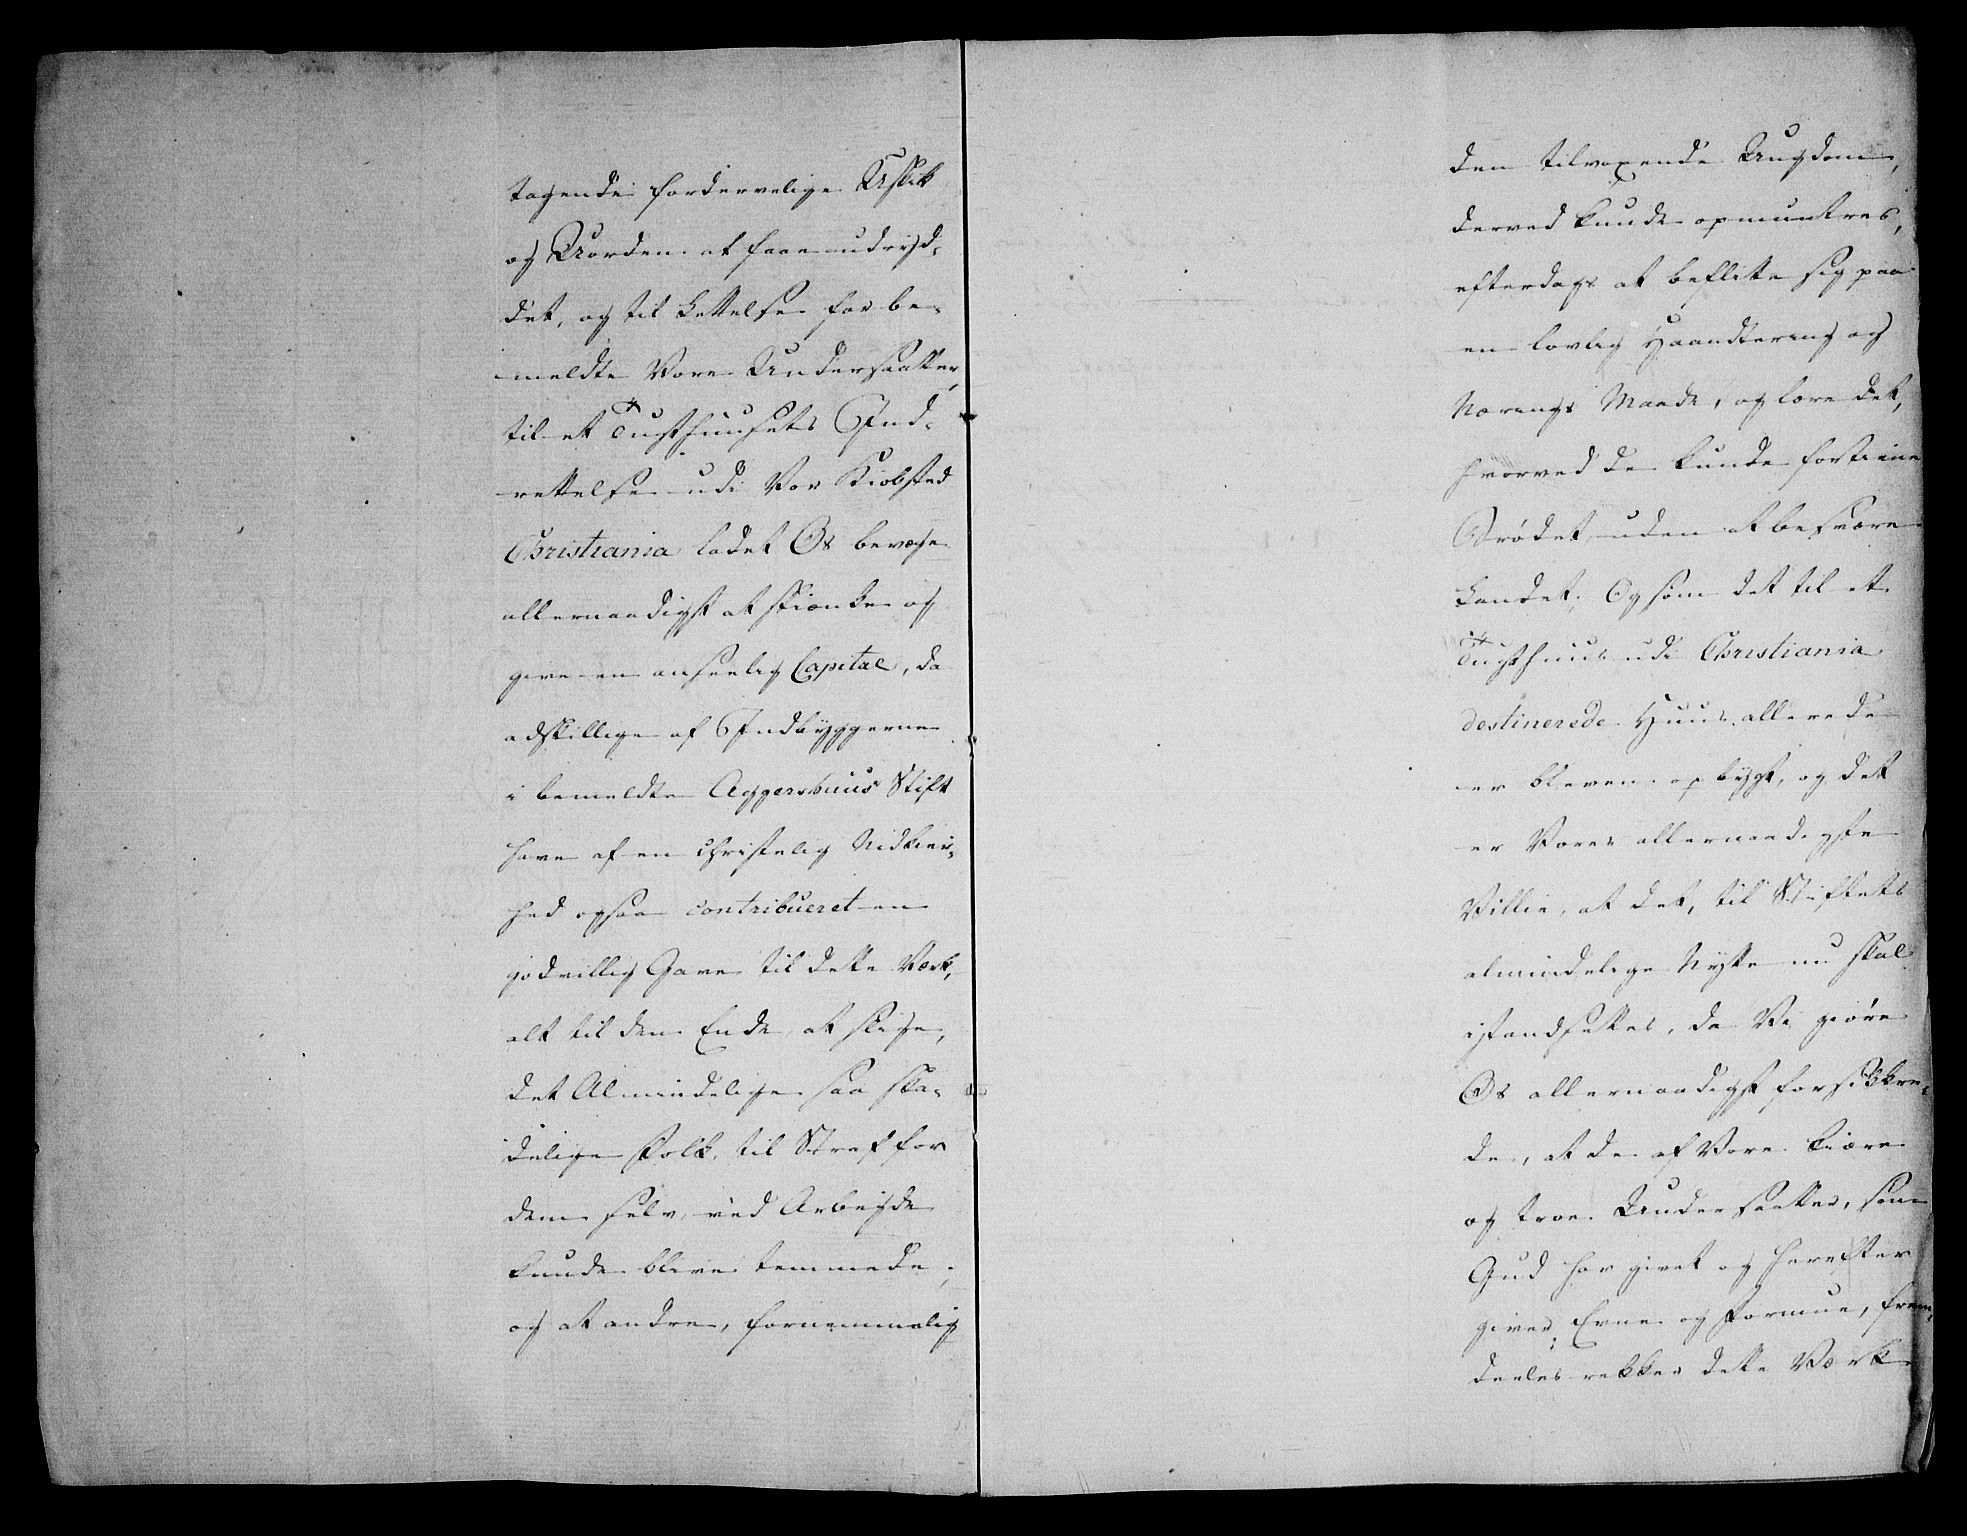 tagende fordervelige Uskik
og Uorden at faae udryd-
det, og til Lettelse for be-
meldte Vore Undersaatter,
til et Tugthuusets Ind-
rettelse udi Vor Kiøbsted
Christiania ladet Os bevæge
allernaadigst at skienke og
give en anseelig Capital, da
adskillige af Indbyggerne
i bemeldte Aggershuus Stift
have af en christelig Nidkier-
hed ogsaa contribueret en
godvillig Gave til dette Værk,
alt til den Ende, at slige,
det Almindelige saa ska-
delige Folk, til Straf for
dem selv, ved Arbeyde
kunde blive temmede;
og at andre, fornemmelig
den tilvoxende Ungdom,
derved kunde opmuntres,
efterdags at beflitte sig paa
en lovlig Haandtering og
Nærings Maade, og lære det,
hvorved de kunde fortiene
Brødet, uden at besvære
Landet; Og som det til et
Tugthuus udi Christiania
destinerede Huus allerede
er bleven opbygt, og det
er Vores allernaadigste
Villie, at det, til Stiftets
almindelige Nytte nu skal
istandsettes, da Vi giøre
Os allernaadigst forsikkre-
de, at de af Vore kiære
og troe Undersaatter, som
Gud har givet og herefter
giver Evne og Formue, frem-
deeles rekker dette Værk